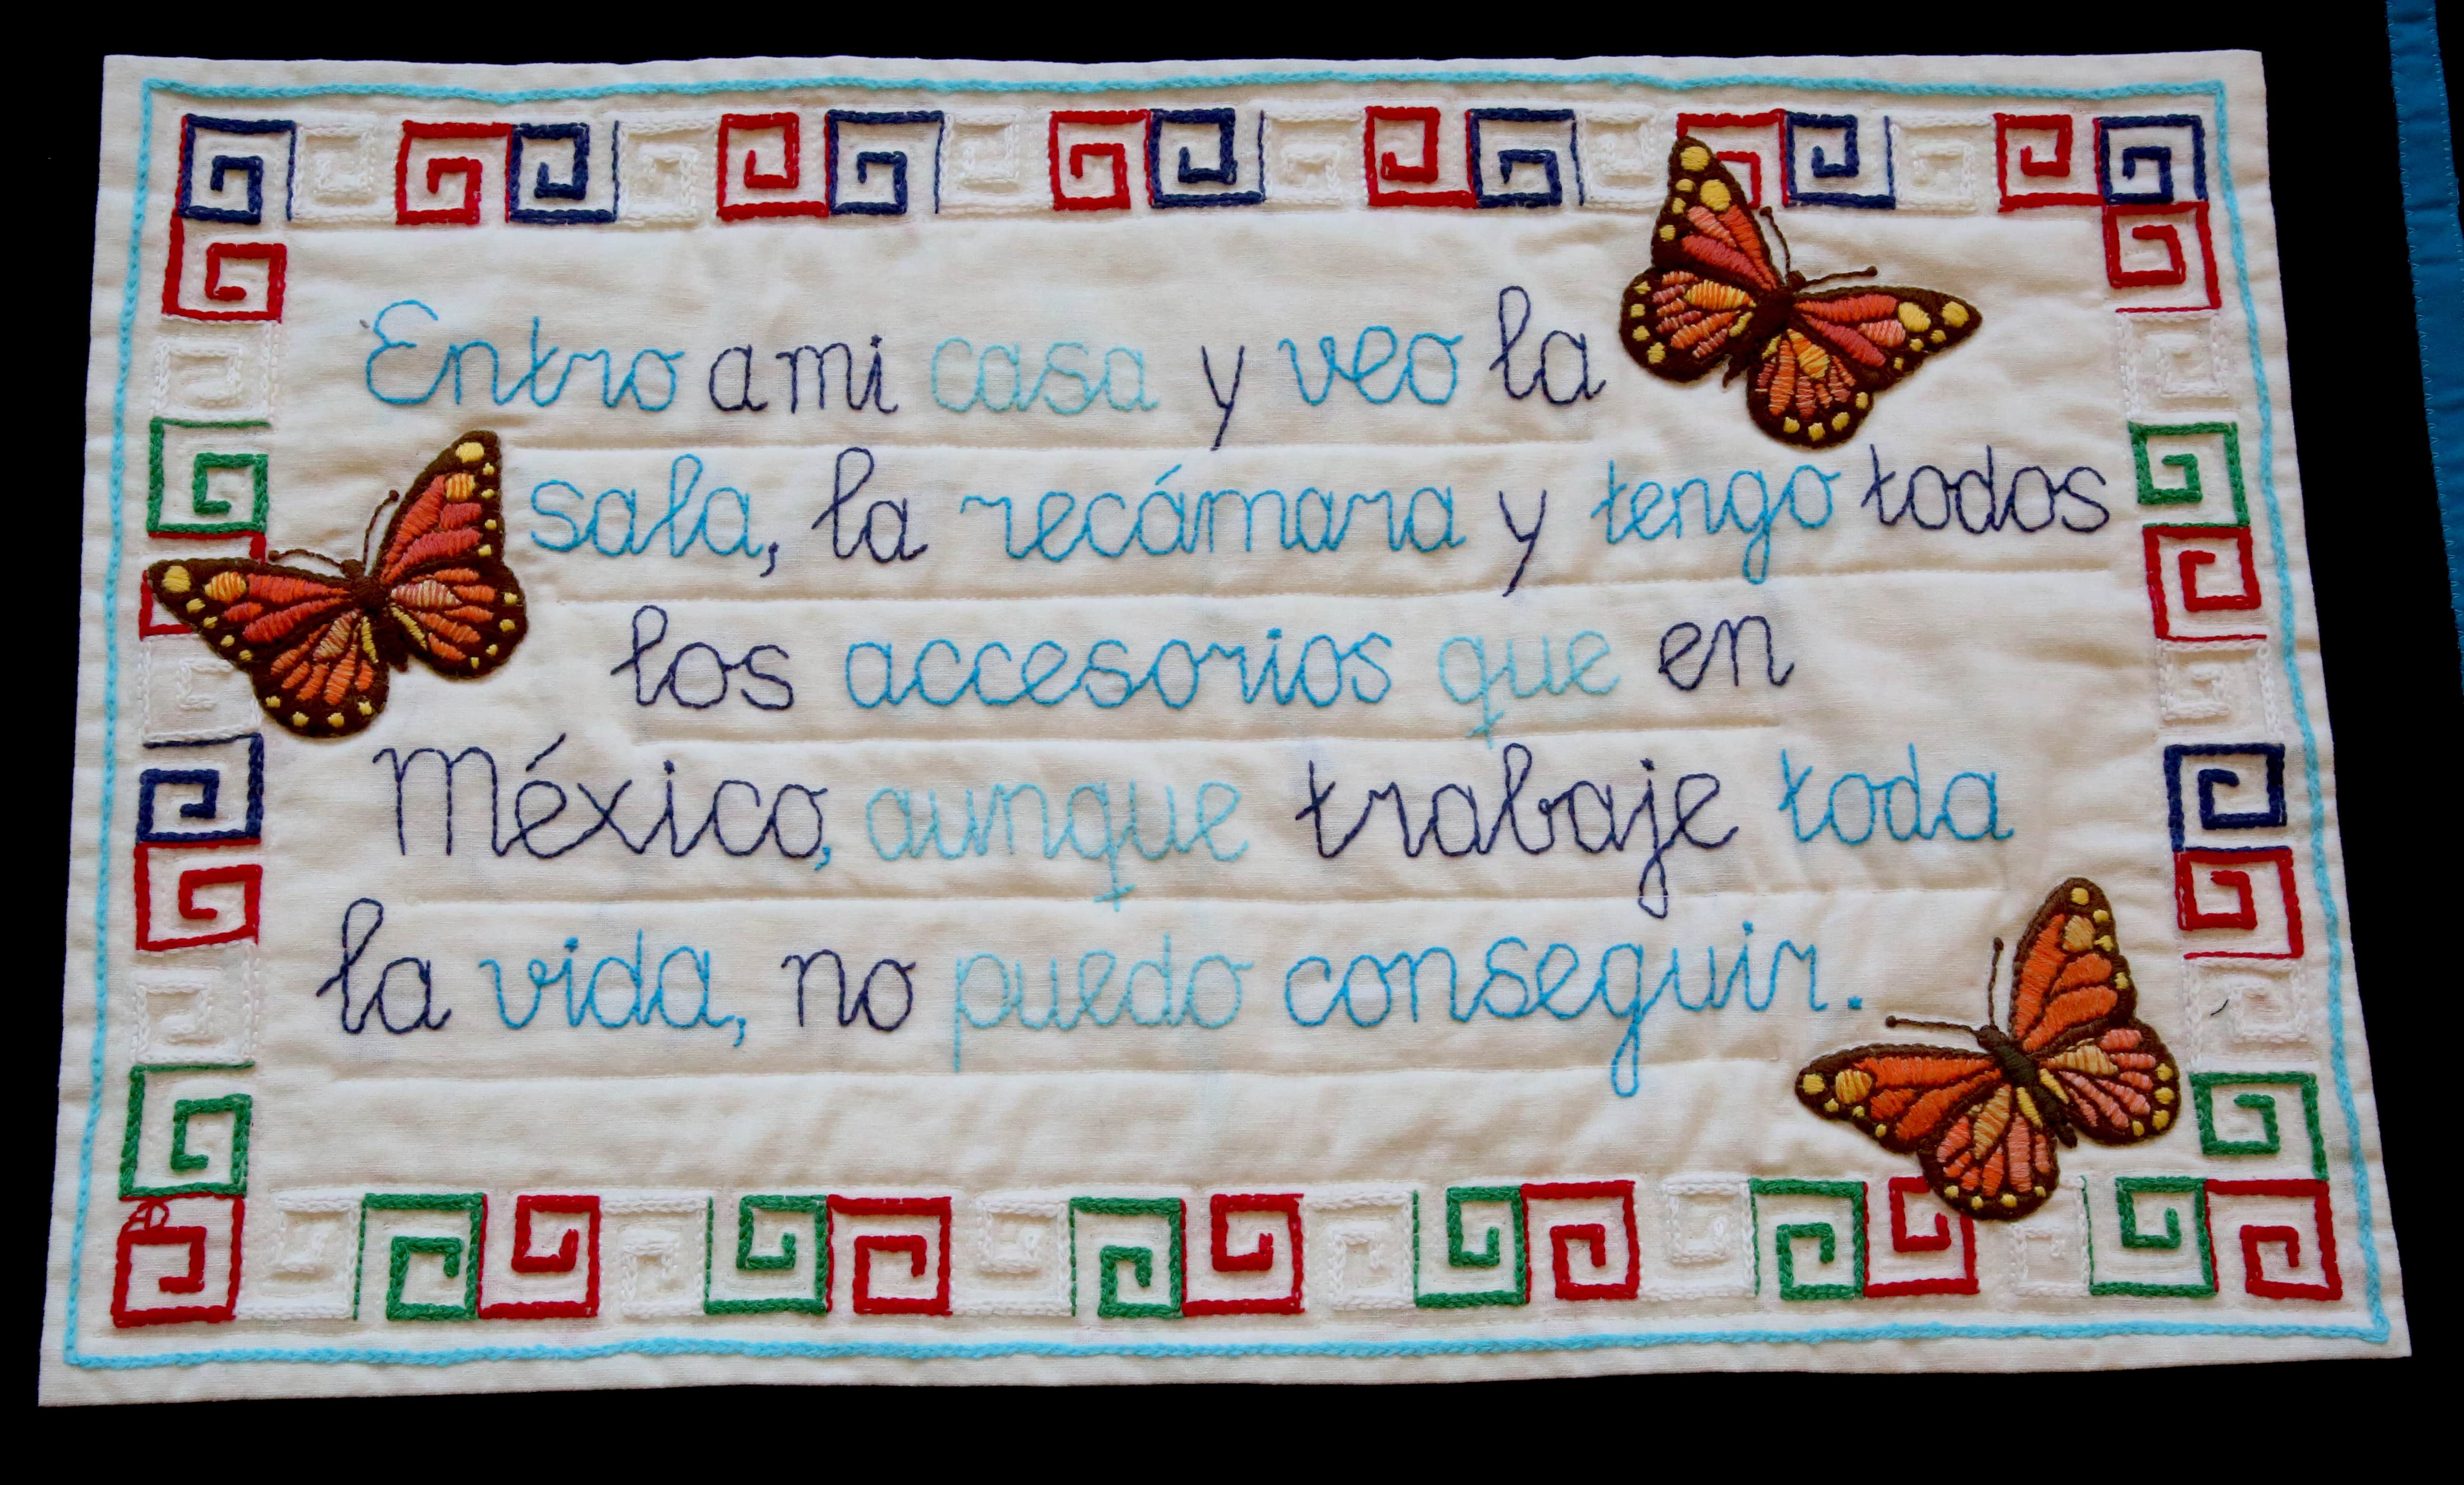 Entro a mi casa y veo la
sala, la recámara y tengo todos
los accesorios que en
México, aunque trabaje toda
la vida, no puedo conseguir.